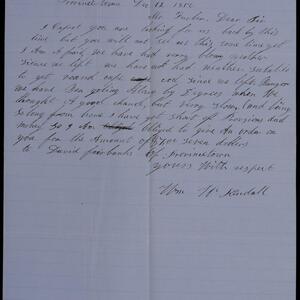 Provincetown Dec 12 1852
Mr. Dear Sir
I Expect you are looking for us back by this
time but you will not see us this some time yet
I Am A fraid, we have had very bloan weather
since we left we have not had weather suitable
to get round cape cod since we left Bangor
we have Ben going Along by Degrees when We
thought A good chanch, but very slow, and being
So long from home I have got Short of Provisions and
money So I Am oblyed to give An order on
you for the Amount of five Seven dollars
to David fairbanks Of Provincetown
yours With respect
Wm Kendall